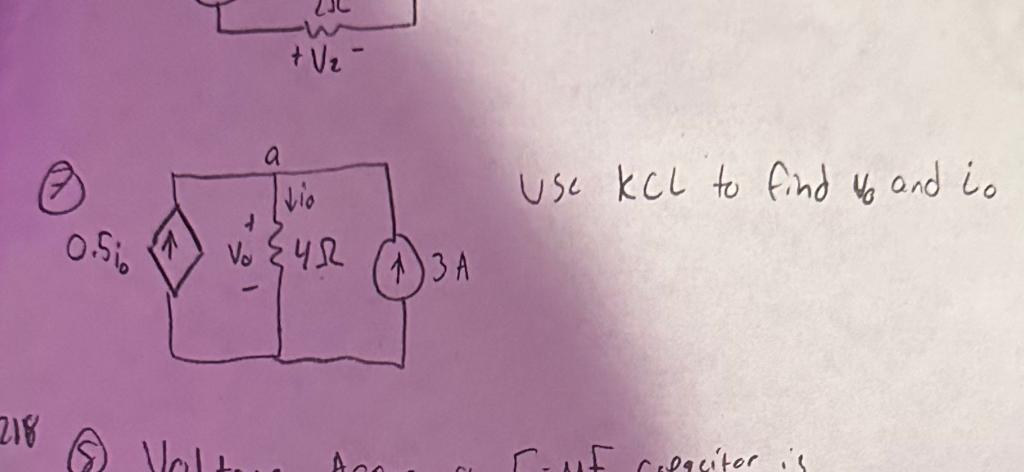 2Ω
+ V₂ -
⑦
a
↓i₀
0.5i₀
+
V₀
-
4Ω
3 A
Use KCL to find v₀ and i₀
218
⑧
capacitor is